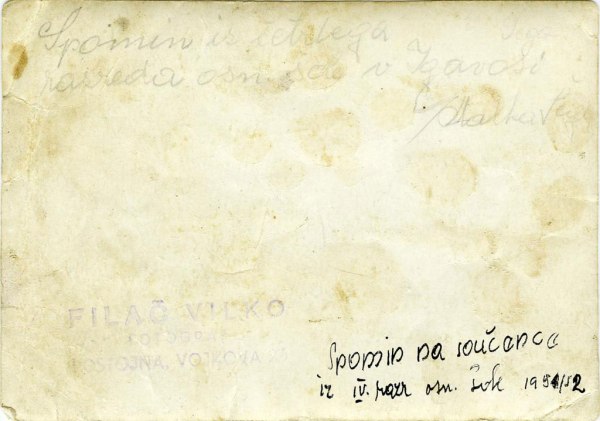 Spomin iz četrtega
razreda osn. šole v Igavasi
FILAČ VILKO
FOTOGRAF
POSTOJNA, VOJKOVA 2
Spomin na součence
iz IV. razr osn. šole 1951/52